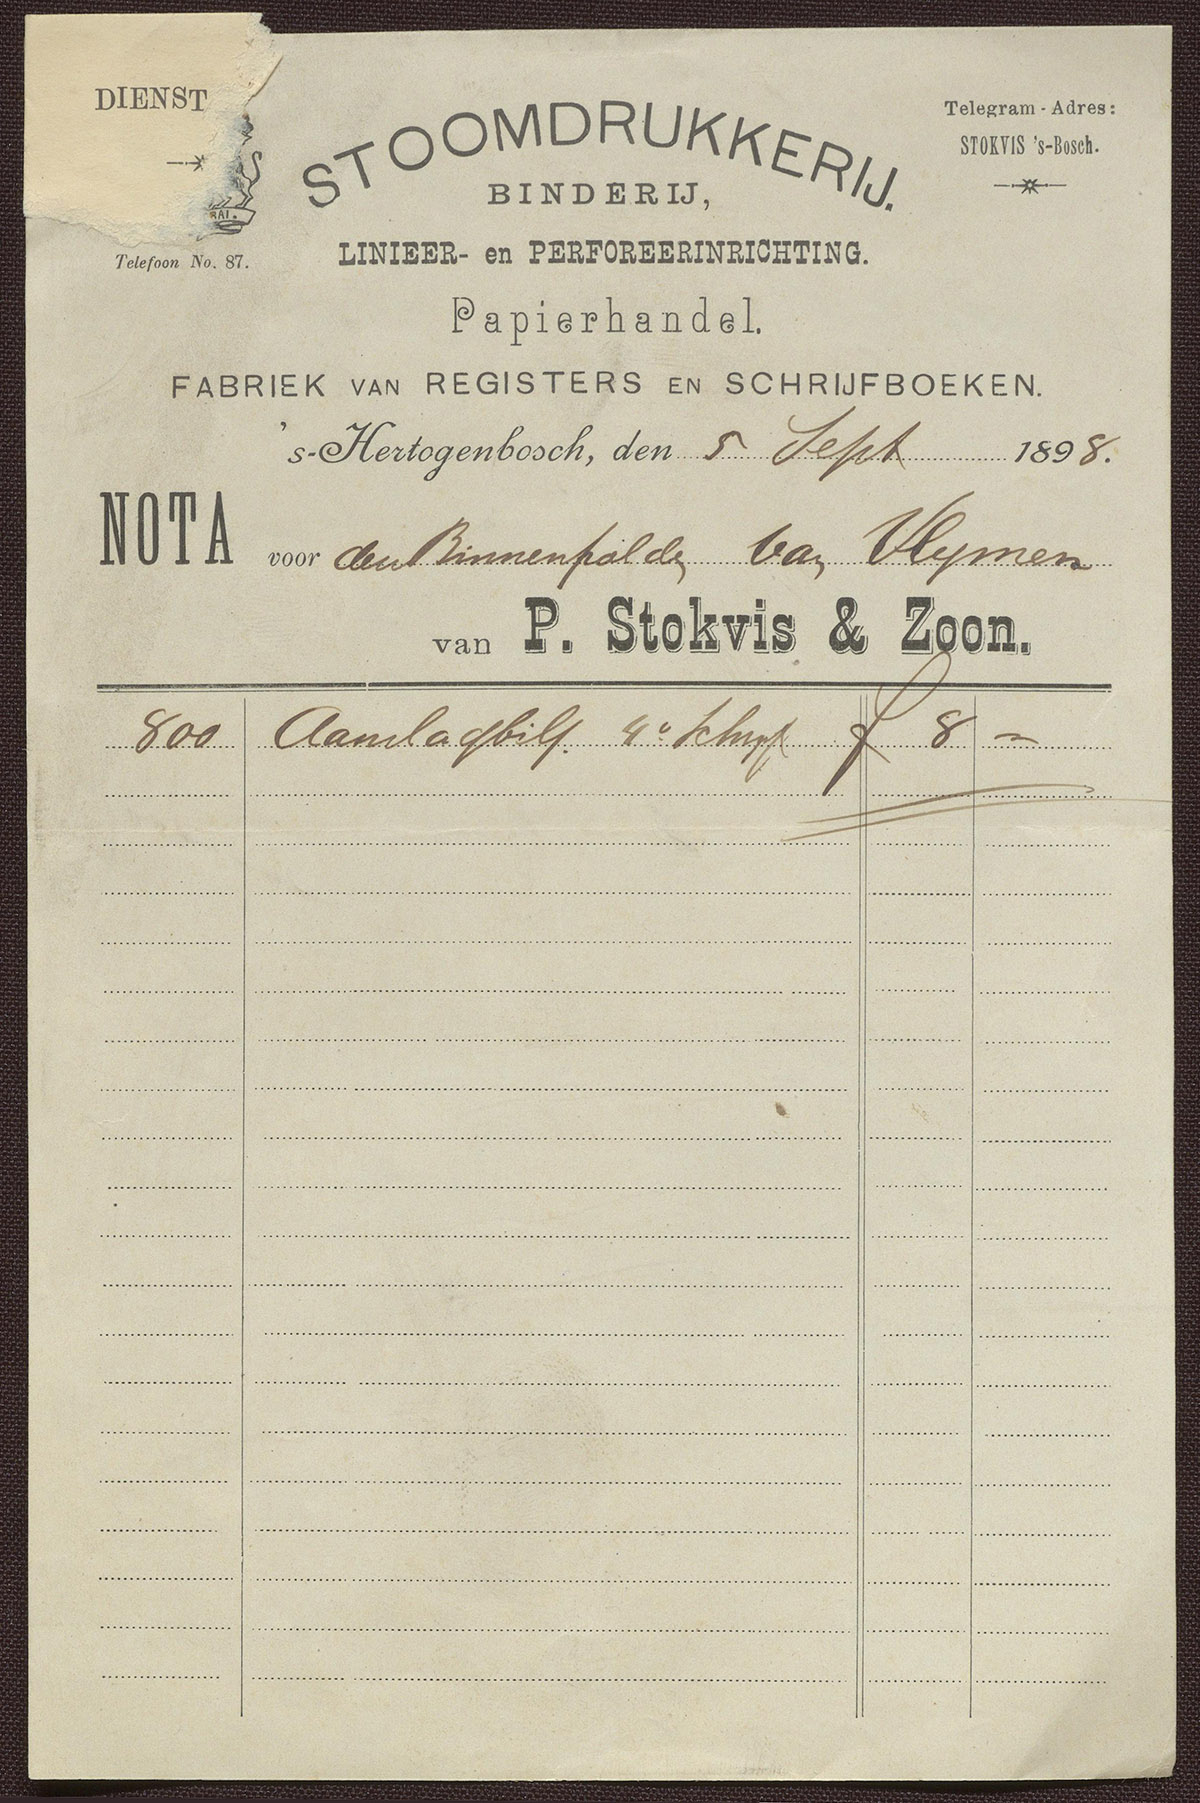 DIENST
RAI.
Telefoon No. 87.
STOOMDRUKKERIJ.
BINDERIJ,
LINIEER- en PERFOREERINRICHTING.
Papierhandel.
FABRIEK VAN REGISTERS EN SCHRIJFBOEKEN.
Telegram-Adres:
STOKVIS 's-Bosch.
's-Hertogenbosch, den 5 Sept 1898.
NOTA voor den Binnenpolder van Vlymen
van P. Stokvis & Zoon.
800 Aanslagbilj. 4° f 8 –